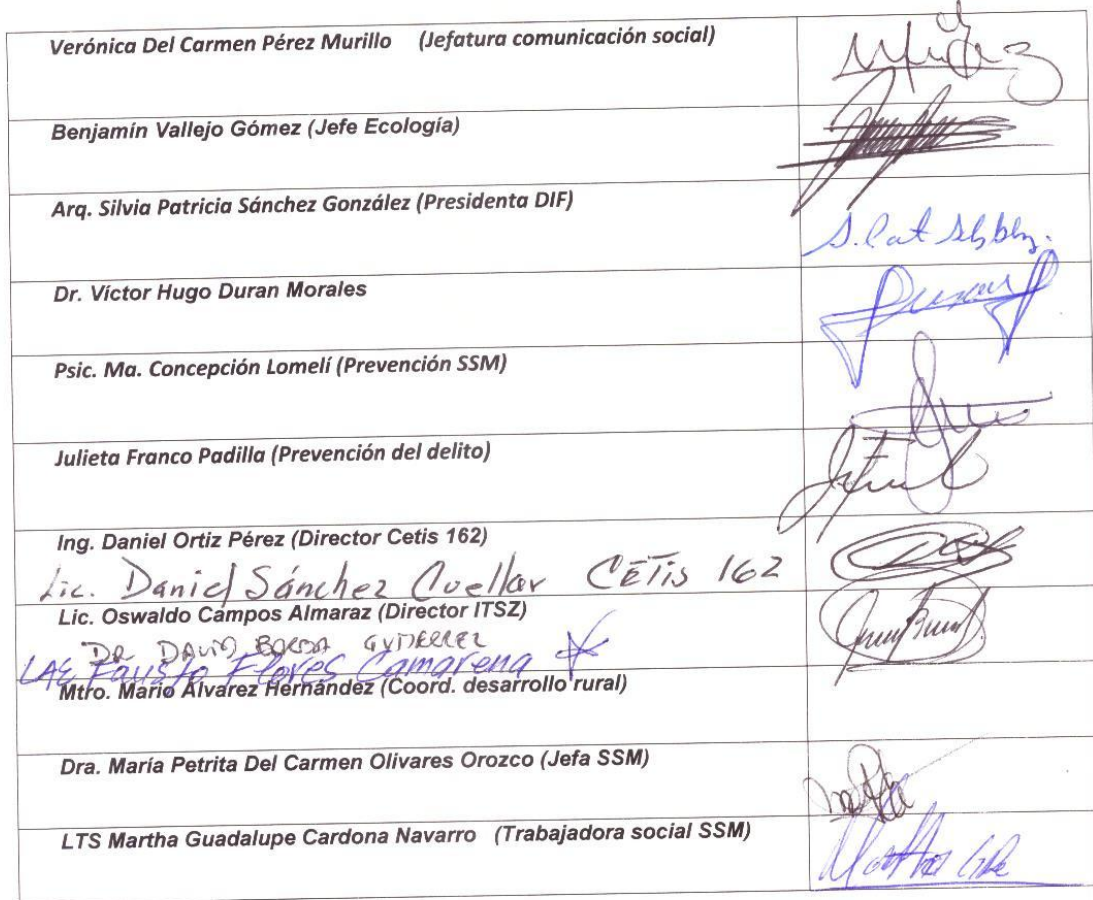 Verónica Del Carmen Pérez Murillo (Jefatura comunicación social)
Benjamín Vallejo Gómez (Jefe Ecología)
Arq. Silvia Patricia Sánchez González (Presidenta DIF)
Dr. Víctor Hugo Duran Morales
Psic. Ma. Concepción Lomelí (Prevención SSM)
Julieta Franco Padilla (Prevención del delito)
Ing. Daniel Ortiz Pérez (Director Cetis 162)
Lic. Daniel Sánchez Cuellar CETis 162
Lic. Oswaldo Campos Almaraz (Director ITSZ)
DR DAVID GUTIERREZ
LAE Fausto Flores Camarena
Mtro. Mario Álvarez Hernández (Coord. desarrollo rural)
Dra. María Petrita Del Carmen Olivares Orozco (Jefa SSM)
LTS Martha Guadalupe Cardona Navarro (Trabajadora social SSM)
Martha